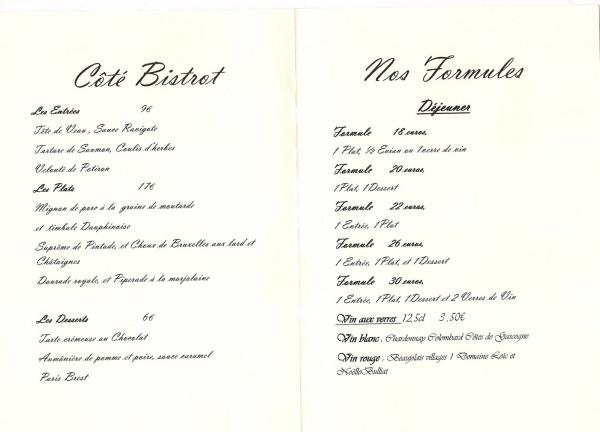 Côté Bistrot
Les Entrées 9€
Tête de Veau, Sauce Ravigote
Tartare de Saumon, Coulis d'herbes
Velouté de Potiron
Les Plats 17€
Mignon de porc à la graine de moutarde
et timbale Dauphinoise
Suprême de Pintade, et Choux de Bruxelles aux lard et
Châtaignes
Daurade royale, et Piperade à la marjolaine
Les Desserts 6€
Tarte crémeuse au Chocolat
Aumônière de pomme et poire, sauce caramel
Paris Brest
Nos Formules
Déjeuner
Formule 18 euros,
1 Plat, ½ Evian ou 1verre de vin
Formule 20 euros,
1Plat, 1Dessert
Formule 22 euros,
1 Entrée, 1Plat
Formule 26 euros,
1 Entrée, 1Plat, et 1Dessert
Formule 30 euros,
1 Entrée, 1Plat, 1Dessert et 2 Verres de Vin
Vin aux verres 12,5cl 3,50€
Vin blanc, Chardonnay Colombard Côtes de Gascogne
Vin rouge, Beaujolais villages 1 Domaine Loïc et
NoëlleBulliat